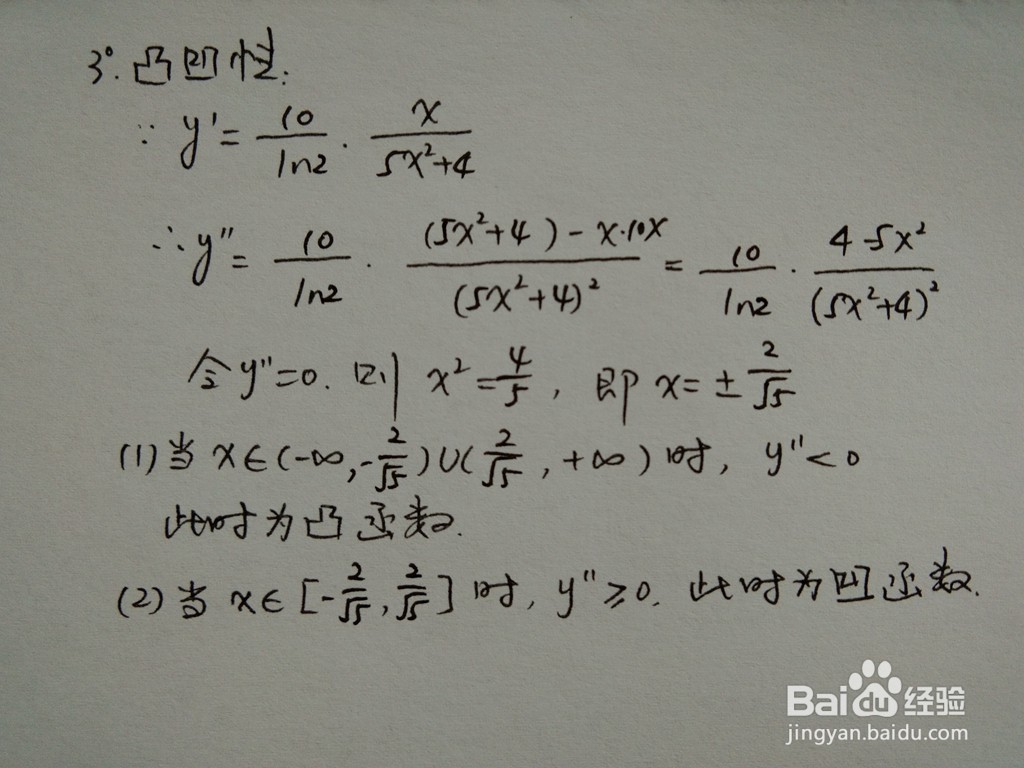 3°. 凸凹性:
∵ y' = 10/ln2 · x/(5x²+4)
∴ y'' = 10/ln2 · ((5x²+4) - x·10x)/(5x²+4)² = 10/ln2 · (4-5x²)/(5x²+4)²
令 y''=0. 则 x² = 4/5, 即 x = ± 2/√5
(1) 当 x∈(-∞, -2/√5)∪(2/√5, +∞) 时, y''<0
此时为凸函数.
(2) 当 x∈[-2/√5, 2/√5] 时, y''≥0. 此时为凹函数.
Bai du 经验
jingyan.baidu.com